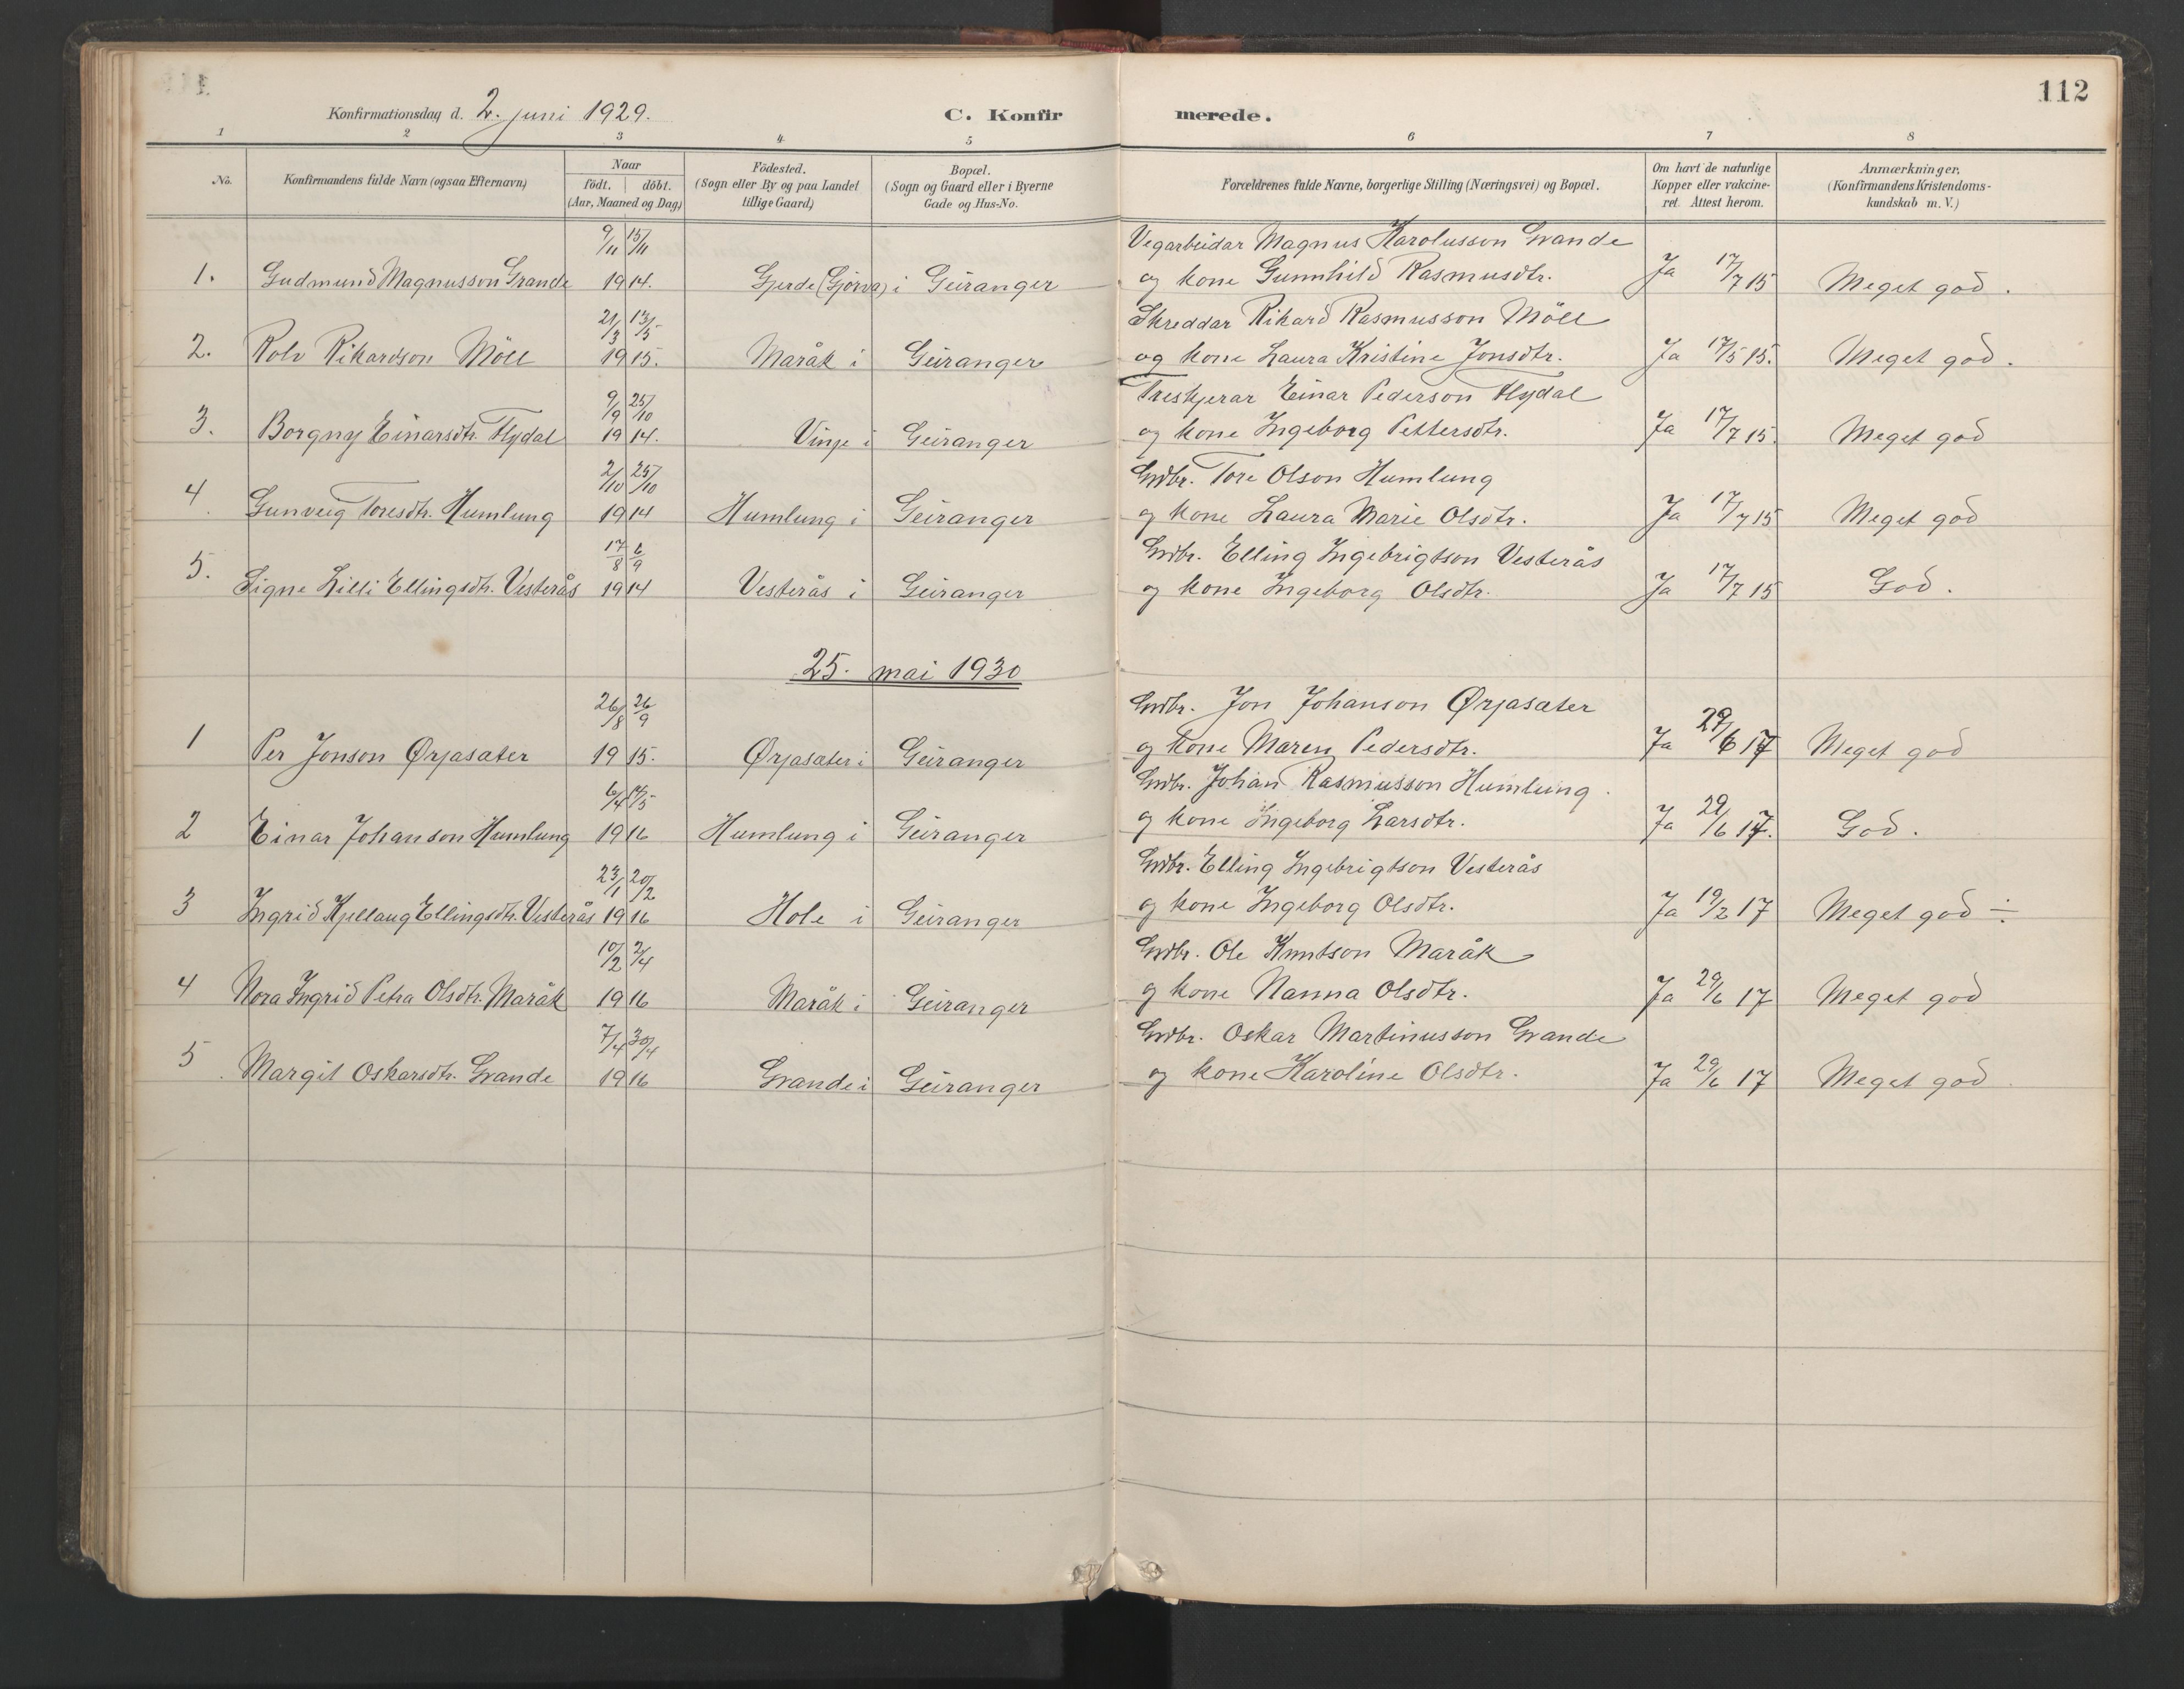 112
Konfirmationsdag d. 2. juni 1929. C. Konfirmerede.
1 2 3 4 5 6 7 8
No. Konfirmandens fulde Navn (ogsaa Efternavn) Naar födt. döbt. (Aar, Maaned og Dag) Födested. (Sogn eller By og paa Landet tillige Gaard) Bopæl. (Sogn og Gaard eller i Byerne Gade og Hus-No. Forældrenes fulde Navne, borgerlige Stilling (Næringsvei) og Bopæl. Om havt de naturlige Kopper eller vakcineret. Attest herom. Anmærkninger. (Konfirmandens Kristendomskundskab m. V.)
9/11 15/11 Vegarbeidar Magnus Karolusson Grande
1. Gudmund Magnusson Grande 1914. Gjerde (Gjörva) i Geiranger og kone Gunnhild Rasmusdtr. Ja 17/7 15 Meget god.
21/3 13/5 Skreddar Rikard Rasmusson Möll
2. Rolv Rikardson Möll 1915. Maråk i Geiranger og kone Laura Kristine Jonsdtr. Ja 17/5 15. Meget god.
9/9 25/10 Treskjerar Einar Pederson Flydal
3. Borgny Einarsdtr. Flydal 1914. Vinje i Geiranger og kone Ingeborg Pettersdtr. Ja 17/7 15. Meget god
2/10 25/10 Grdbr. Tore Olson Humlung
4. Gunveig Toresdtr. Humlung 1914 Humlung i Geiranger og kone Laura Marie Olsdtr. Ja 17/7 15 Meget god
17/8 6/9 Grdbr. Elling Ingebrigtson Vesterås
5. Signe Lilli Ellingsdtr. Vesterås 1914 Vesterås i Geiranger og kone Ingeborg Olsdtr. Ja 17/7 15 God.
25. mai 1930
26/8 26/9 Grdbr. Jon Johanson Ørjasæter
1 Per Jonson Ørjasæter 1915. Ørjasæter i Geiranger og kone Maren Pedersdtr. Ja 29/6 17 Meget god
6/4 Grdbr. Johan Rasmusson Humlung.
2 Einar Johanson Humlung 1916 Humlung i Geiranger og kone Ingeborg Larsdtr. Ja 29/6 17. God.
23/1 20/2 Grdbr. Elling Ingebrigtson Vesterås
3 Ingrid Kjellaug Ellingsdtr. Vesterås 1916 Hole i Geiranger og kone Ingeborg Olsdtr. Ja 19/2 17 Meget god ÷
10/2 2/4 Grdbr. Ole Knutson Maråk
4 Nora Ingrid Petra Olsdtr. Maråk 1916 Maråk i Geiranger og kone Nanna Olsdtr. Ja 29/6 17 Meget god
7/4 30/4 Grdbr. Oskar Martinusson Grande
5 Margit Oskarsdtr. Grande 1916 Grande i Geiranger og kone Karoline Olsdtr. Ja 29/6 17 Meget god